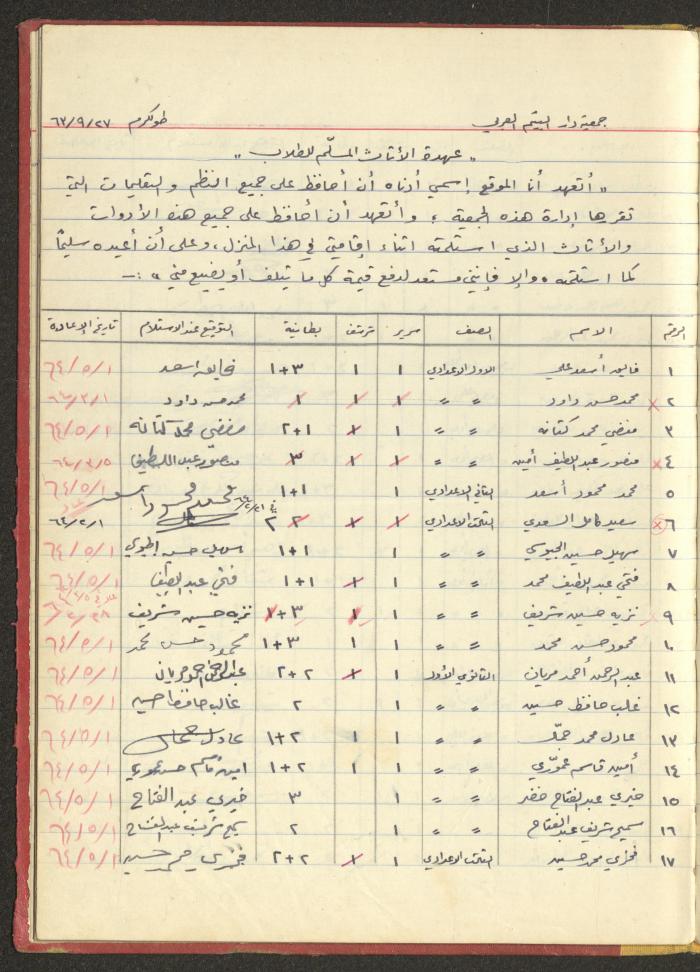 جمعية دار اليتيم العربي طولكرم ٦٣/٩/٢٧
" عهدة الأثاث المسلّم للطلاب "
" أتعهد أنا الموقع إسمي أدناه أن أحافظ على جميع النظم والتعليمات التي
تقرها إدارة هذه الجمعية ، وأتعهد أن أحافظ على جميع هذه الأدوات
والأثاث الذي استلمته اثناء إقامتي في هذا المنزل ، وعلى أن أعيده سليمًا
كما استلمته ، وإلا فإنني مستعد لدفع قيمة كل ما يتلف أو يضيع مني " :ـ
الرقم الاسم الصف سرير شرشف بطانية التوقيع عند الاستلام تاريخ الاعادة
١ فايق أسعد علي الاول الاعدادي ١ ١ ٣+١ فايق اسعد ٦٤/٥/١
٢ محمد حسن داود " " ١ ١ ١ محمد حسن داود ٦٤/٢/١
٣ منضي محمد كتانه " " ١ ١ ١+٢ منضي محمد كتانه ٦٤/٥/١
٤ منصور عبد اللطيف أمين " " ١ ١ ٣ منصور عبد اللطيف ٦٤/٢/٥
٥ محمد محمود أسعد الثاني الاعدادي ١ ١+١ محمد محمود اسعد ٦٤/٥/١
٦ سعيد كامل السعدي الثالث الاعدادي ١ ١ ٢ ٢ ٦٤/٢/١
٧ سهيل حسين الجيوسي " " ١ ١+١ سهيل حسين الجيوسي ٦٤/٥/١
٨ فتحي عبد اللطيف محمد " " ١ ١ ١+١ فتحي عبد اللطيف ٦٤/٥/١
٩ نزيه حسين شريف " " ١ ١ ٣+١ نزيه حسين شريف
١٠ محمود حسن محمد " " ١ ١ ٣+١ محمود حسن محمد ٦٤/٥/١
١١ عبد الرحمن أحمد مريان الثانوي الأول ١ ١ ٢+٢ ٦٤/٥/١
١٢ غالب حافظ حسين " " ١ ٢ غالب حافظ حسين ٦٤/٥/١
١٣ عادل محمد " " ١ ١ ٢+١ عادل ٦٤/٥/١
١٤ أمين قاسم عمّوري " " ١ ١ ٢+١ امين قاسم عموري ٦٤/٥/١
١٥ خيري عبد الفتاح خضر " " ١ ٣ خيري عبد الفتاح ٦٤/٥/١
١٦ سميح شريف عبد الفتاح " " ١ ٢ سميح شريف عبد الفتاح ٦٤/٥/١
١٧ فخري محمد حسين الثالث الاعدادي ١ ١ ٢+٢ فخري محمد حسين ٦٤/٥/١